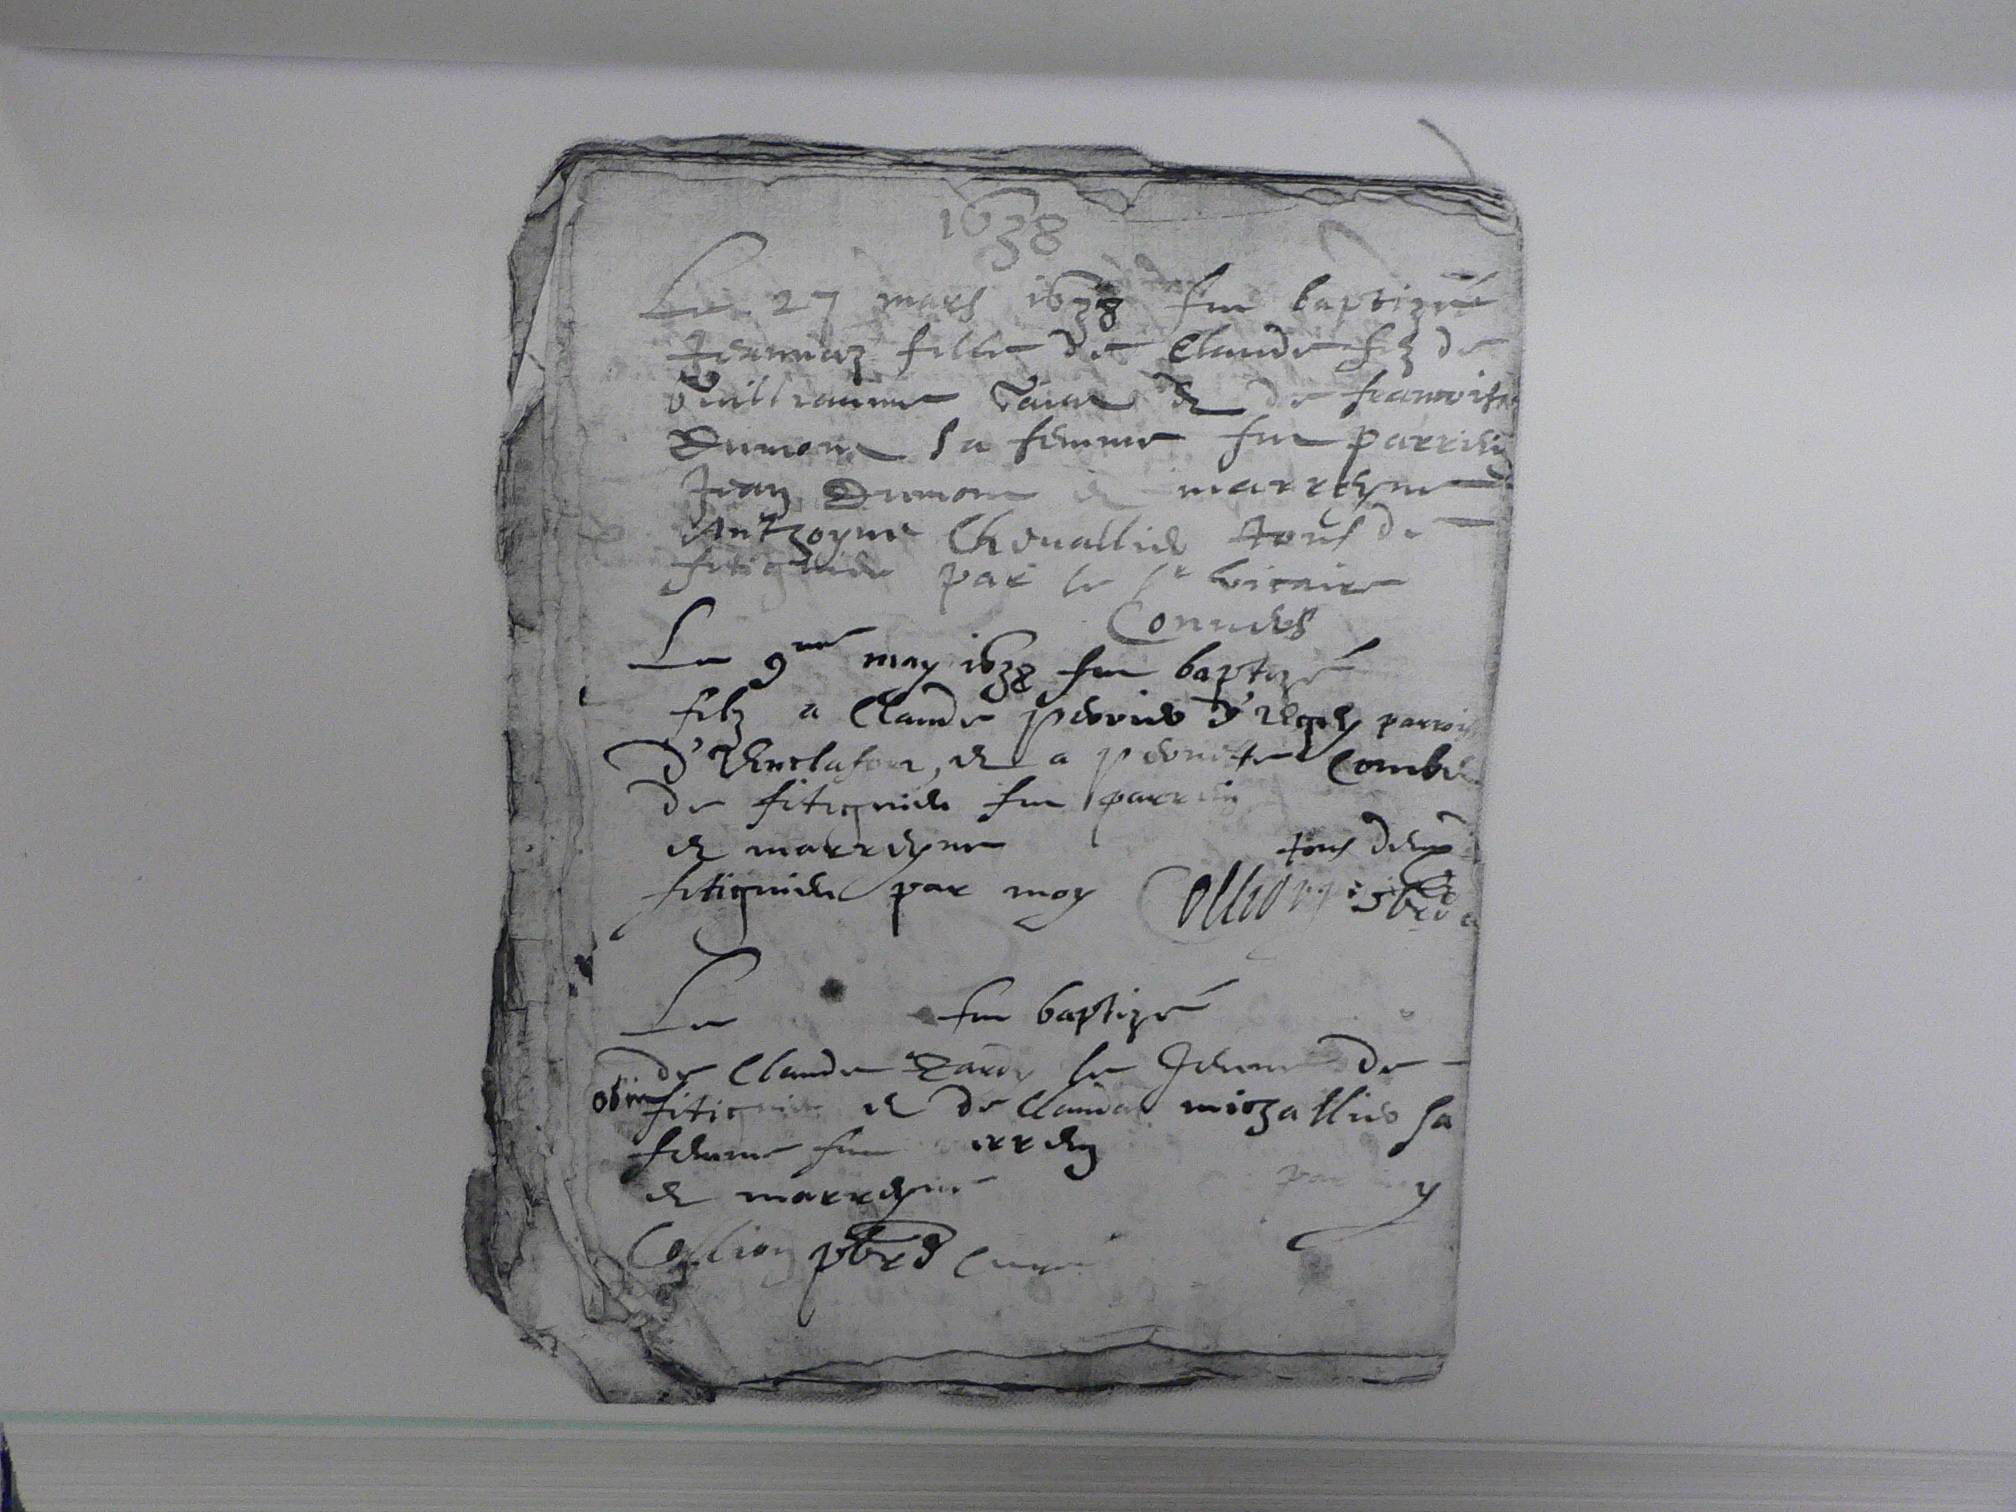 1638
Le 27 mars 1638 fut baptizée
Jeanne fille de Claude filz de
Guillaume et de francoise
Dumont sa femme fut parrein
Jean Dumont et marreyne
Anthoyne Chevallier tous de
fitignieu par le sr vicaire

Le 9me may 1638 fut baptizé
filz a Claude perrier d' parroisse
d' et a pernette Combet
de fitignieu fut parrein
et marreyne tous deux
fitignieu par moy Collion pbre
Le fut baptizé
de Claude le Jeune de
obiit fitignieu et de Clauda michallier sa
femme fut parrein
et marreyne par moy
Collion pbre curé